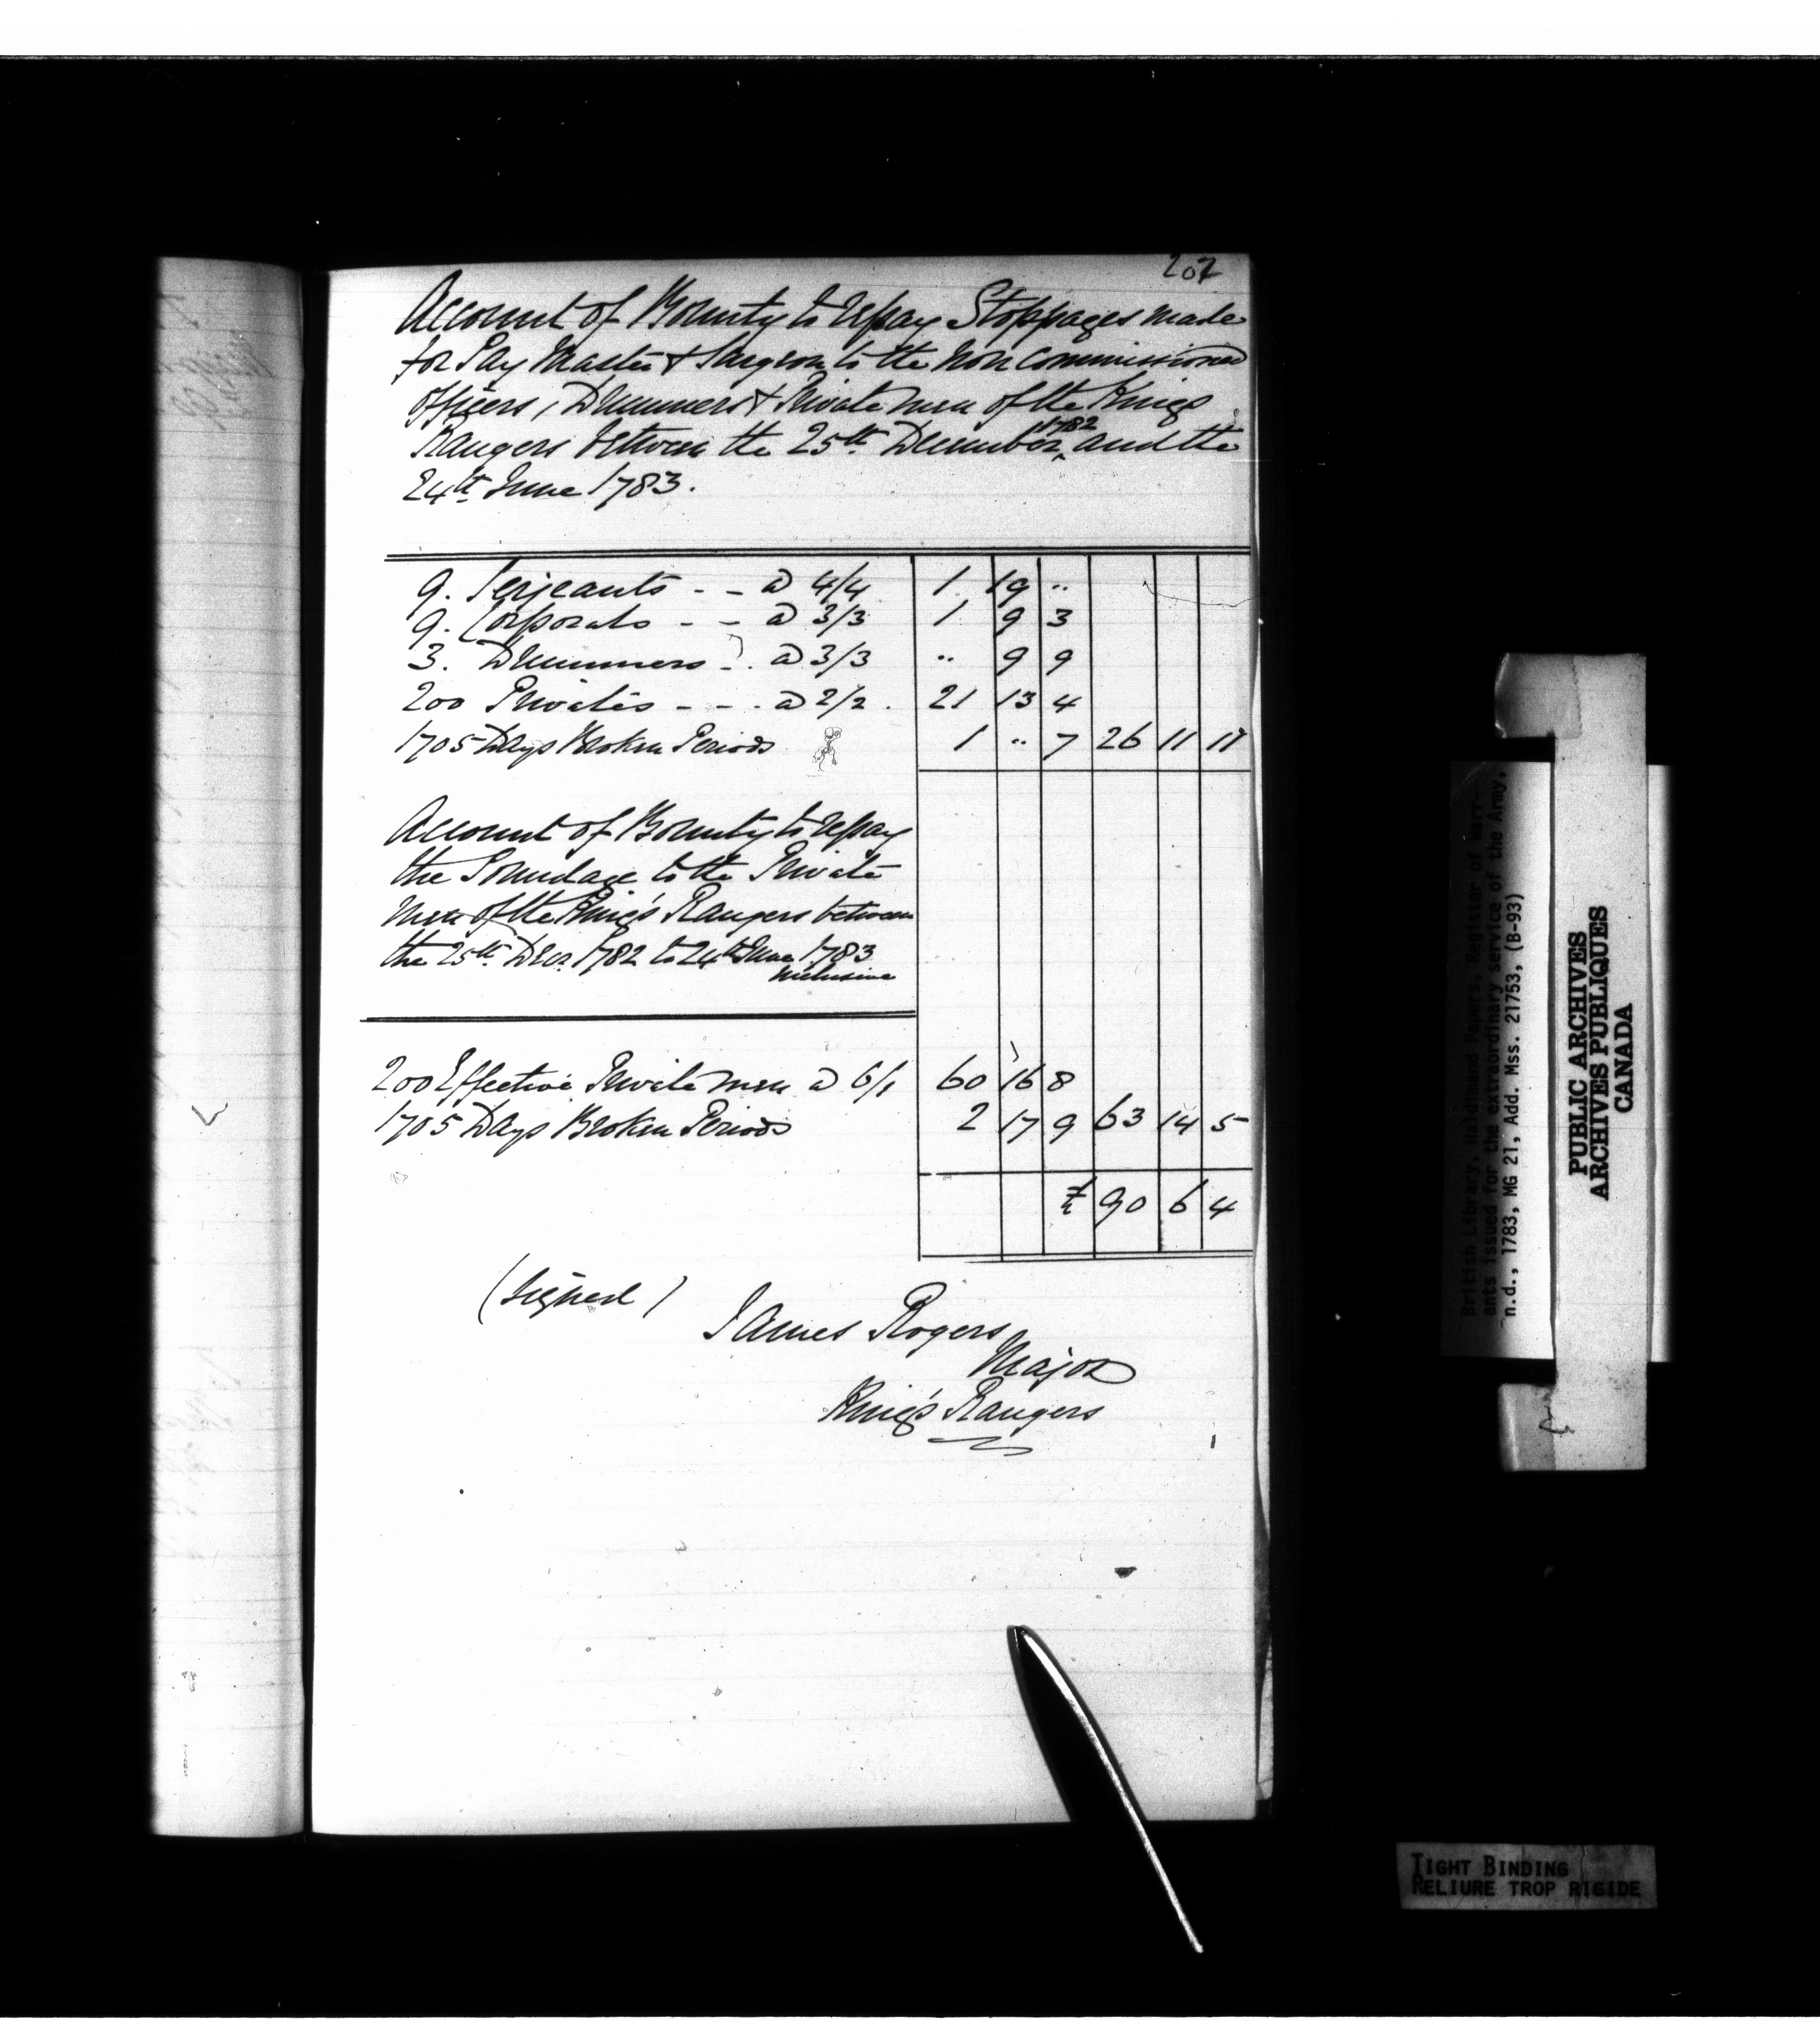 207
Account of Bounty to repay Stoppages made
for Pay Master & Surgeon to the non commissioned
officers, Drummers & Private men of the Kings
Rangers between the 25th December 1782 and the
24th June 1783.
9. Serjeants - - @ 4/4 1 19 "
9. Corporals - - @ 3/3 1 9 3
3. Drummers - . @ 3/3 " 9 9
200 Privates - - . @ 2/2 . 21 13 4
1705 Days Broken Periods 1 " 7 26 11 11
Account of Bounty to repay
the Poundage to the Private
men of the King's Rangers between
the 25th Decr. 1782 to 24th June 1783
inclusive
200 Effective Private men @ 6/1 60 16 8
1705 Days Broken Periods 2 17 9 63 14 5
£ 90 6 4
(Signed)
James Rogers
Major
King's Rangers
British Library, Haldimand Papers, Register of Warr-
ants issued for the extraordinary service of the Army,
n.d., 1783, MG 21, Add. Mss. 21753, (B-93)
PUBLIC ARCHIVES
ARCHIVES PUBLIQUES
CANADA
TIGHT BINDING
RELIURE TROP RIGIDE